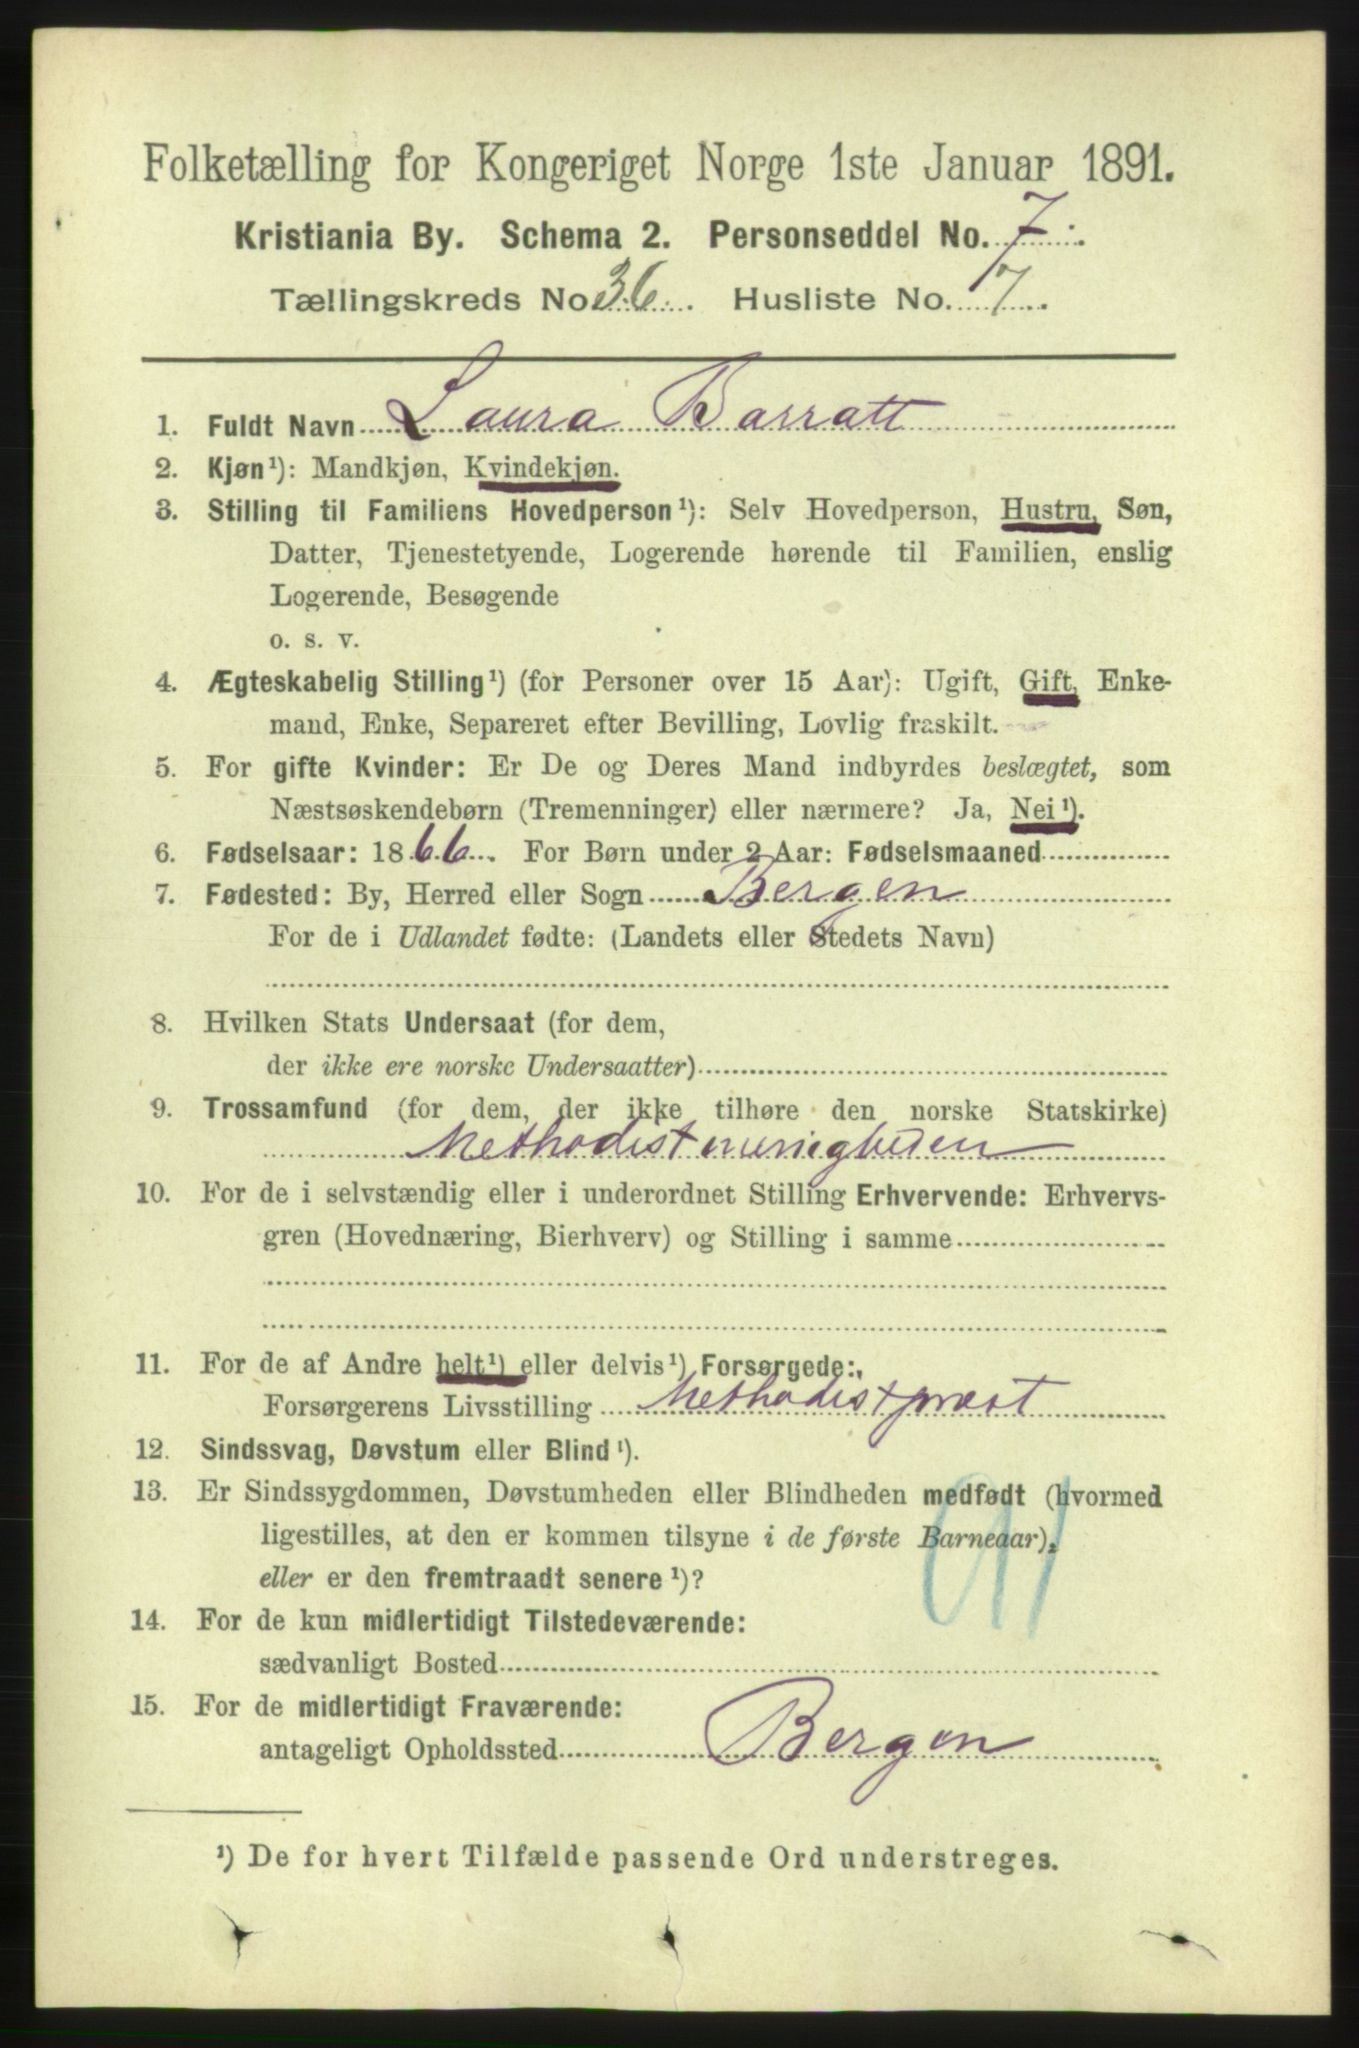 Folketælling for Kongeriget Norge 1ste Januar 1891.
Kristiania By. Schema 2. Personseddel No. 7.
Tællingskreds No 36. Husliste No. 7.
1. Fuldt Navn Laura Barratt
2. Kjøn¹): Mandkjøn, Kvindekjøn.
3. Stilling til Familiens Hovedperson¹): Selv Hovedperson, Hustru, Søn,
Datter, Tjenestetyende, Logerende hørende til Familien, enslig
Logerende, Besøgende
o. s. v.
4. Ægteskabelig Stilling¹) (for Personer over 15 Aar): Ugift, Gift, Enke-
mand, Enke, Separeret efter Bevilling, Lovlig fraskilt.
5. For gifte Kvinder: Er De og Deres Mand indbyrdes beslægtet, som
Næstsøskendebørn (Tremenninger) eller nærmere? Ja, Nei¹).
6. Fødselsaar: 1866. For Børn under 2 Aar: Fødselsmaaned
7. Fødested: By, Herred eller Sogn Bergen
For de i Udlandet fødte: (Landets eller Stedets Navn)
8. Hvilken Stats Undersaat (for dem,
der ikke ere norske Undersaatter)
9. Trossamfund (for dem, der ikke tilhøre den norske Statskirke)
Methodistmenigheden
10. For de i selvstændig eller i underordnet Stilling Erhvervende: Erhvervs-
gren (Hovednæring, Bierhverv) og Stilling i samme
11. For de af Andre helt¹) eller delvis¹) Forsørgede:
Forsørgerens Livsstilling Methodistpræst
12. Sindssvag, Døvstum eller Blind¹).
13. Er Sindssygdommen, Døvstumheden eller Blindheden medfødt (hvormed
ligestilles, at den er kommen tilsyne i de første Barneaar),
eller er den fremtraadt senere¹)?
14. For de kun midlertidigt Tilstedeværende:
sædvanligt Bosted
15. For de midlertidigt Fraværende:
antageligt Opholdssted Bergen
¹) De for hvert Tilfælde passende Ord understreges.